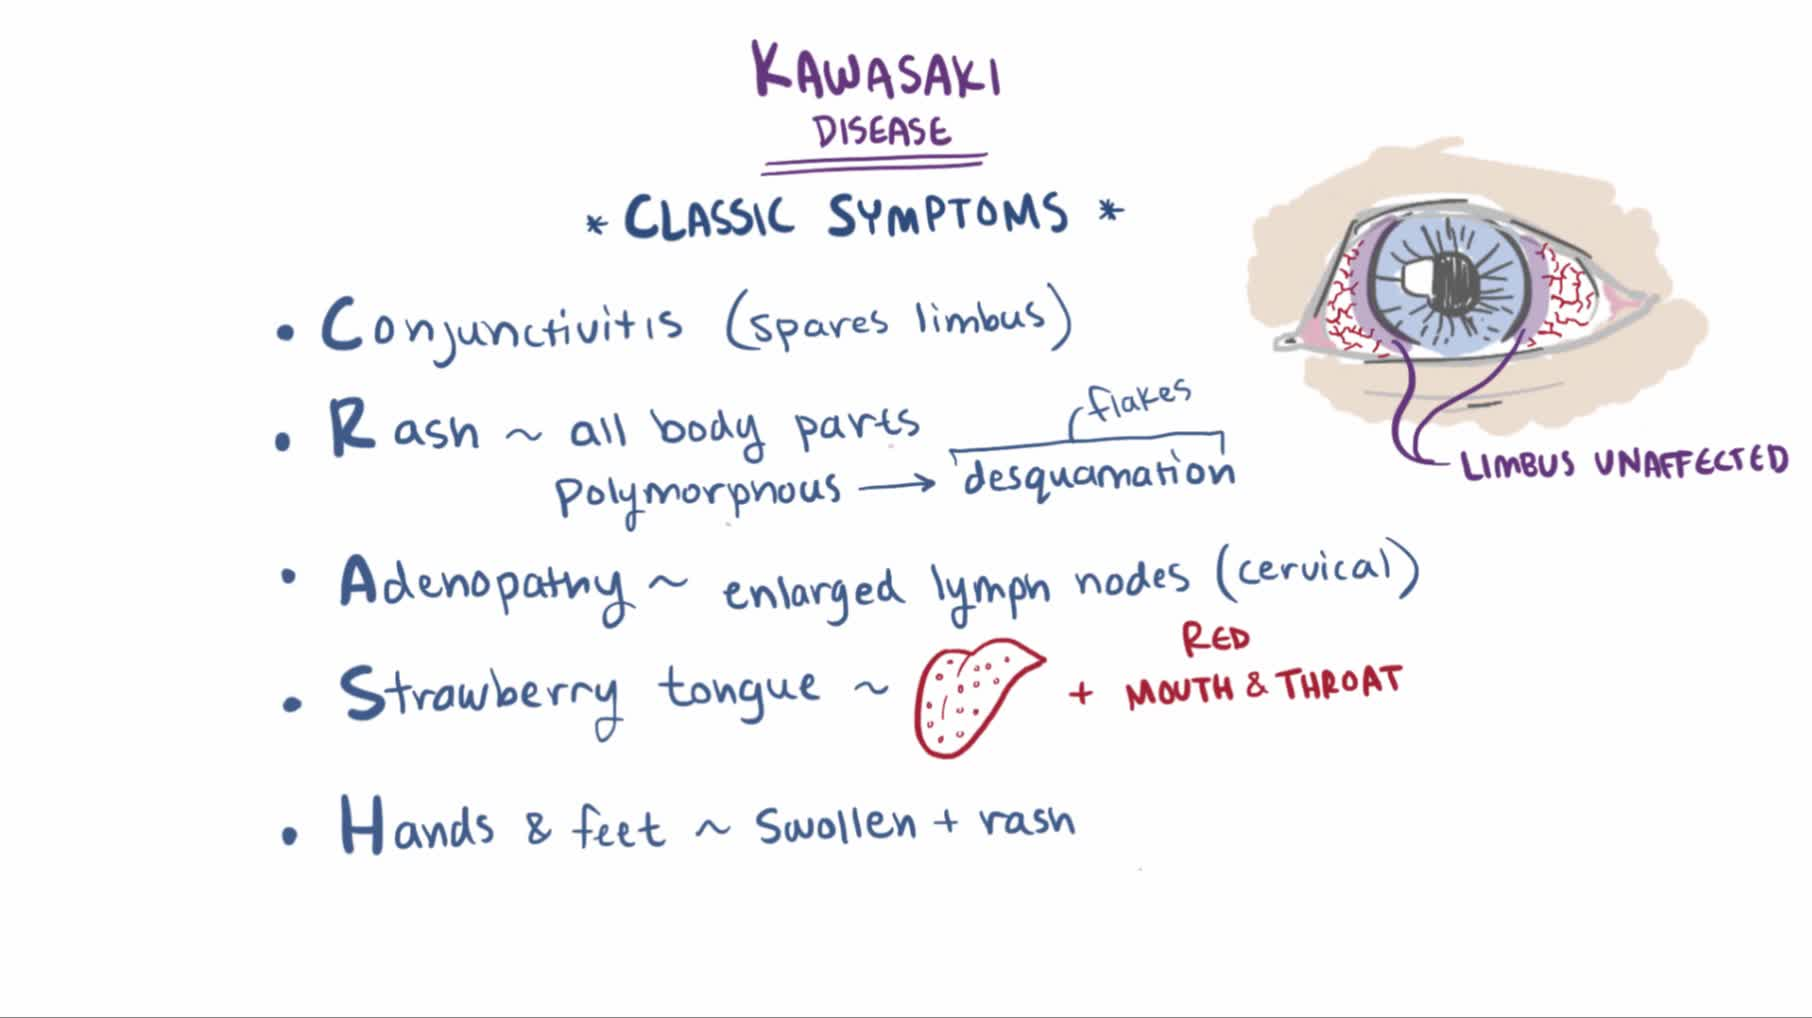 KAWASAKI
DISEASE
* CLASSIC SYMPTOMS *
• Conjunctivitis (spares limbus)
• Rash ~ all body parts
flakes
Polymorphous → desquamation
LIMBUS UNAFFECTED
• Adenopathy ~ enlarged lymph nodes (cervical)
• Strawberry tongue ~ + RED
MOUTH & THROAT
• Hands & feet ~ Swollen + rash